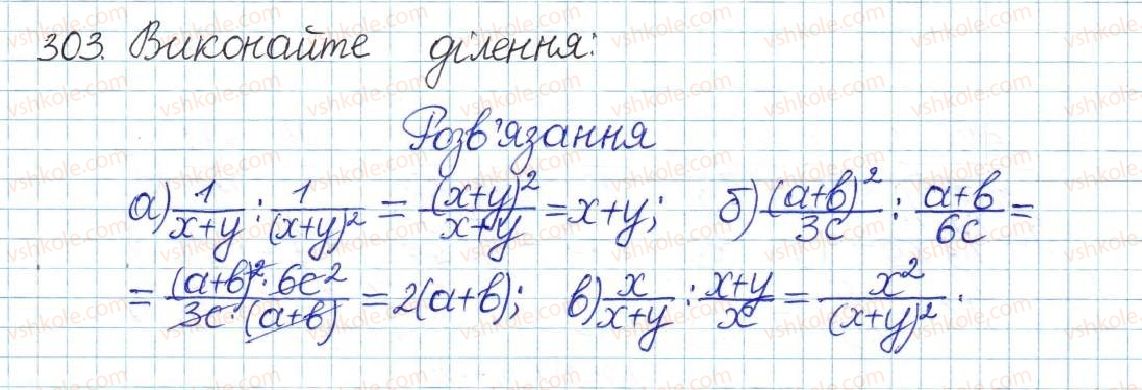 303. Виконайте ділення:
Розв'язання
а) 1/(x+y) : 1/(x+y)² = (x+y)²/(x+y) = x+y; б) (a+b)²/3c : (a+b)/6c =
= (a+b)²·6c²/3c·(a+b) = 2(a+b); в) x/(x+y) : (x+y)/x = x²/(x+y)².